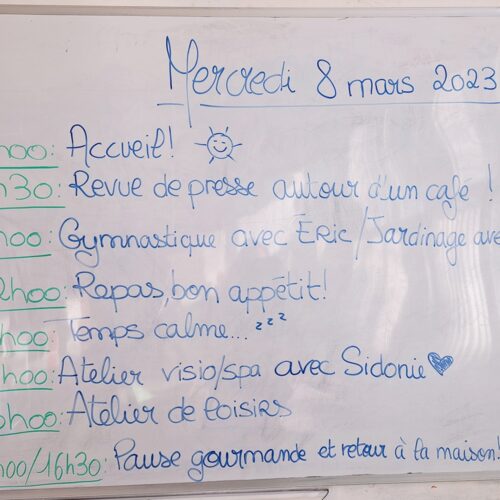 Mercredi 8 mars 2023
hoo: Accueil!
h30: Revue de presse autour d'un café !
hoo: Gymnastique avec Eric/Jardinage ave
2hoo: Repas, bon appétit!
hoo: Temps calme... zzz
hoo: Atelier visio/spa avec Sidonie
hoo: Atelier de loisirs
hoo/16h30: Pause gourmande et retour à la maison!